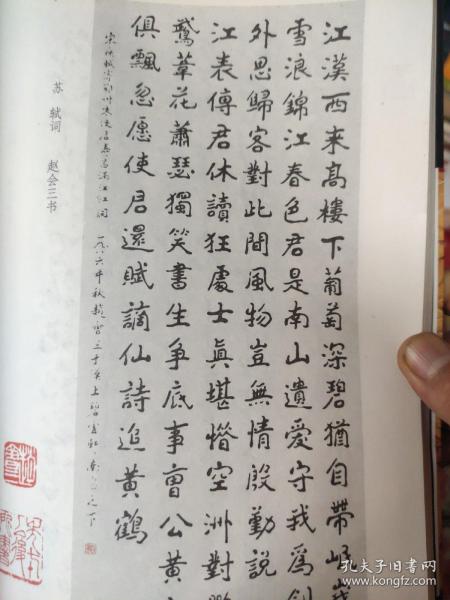 江漢西來高樓下葡萄深碧猶自帶岷峨
雪浪錦江春色君是南山遺愛守我爲劍
外思歸客對此間風物豈無情殷勤說
江表傳君休讀狂處士真堪惜空洲對鸚
鵡葦花蕭瑟獨笑書生爭底事曹公黃
俱飄忽愿使君還賦謫仙詩追黃鶴
壽昌滿江紅詞 一九八六年秋趙會三于
苏 轼词 赵会三书
孔夫子旧书网